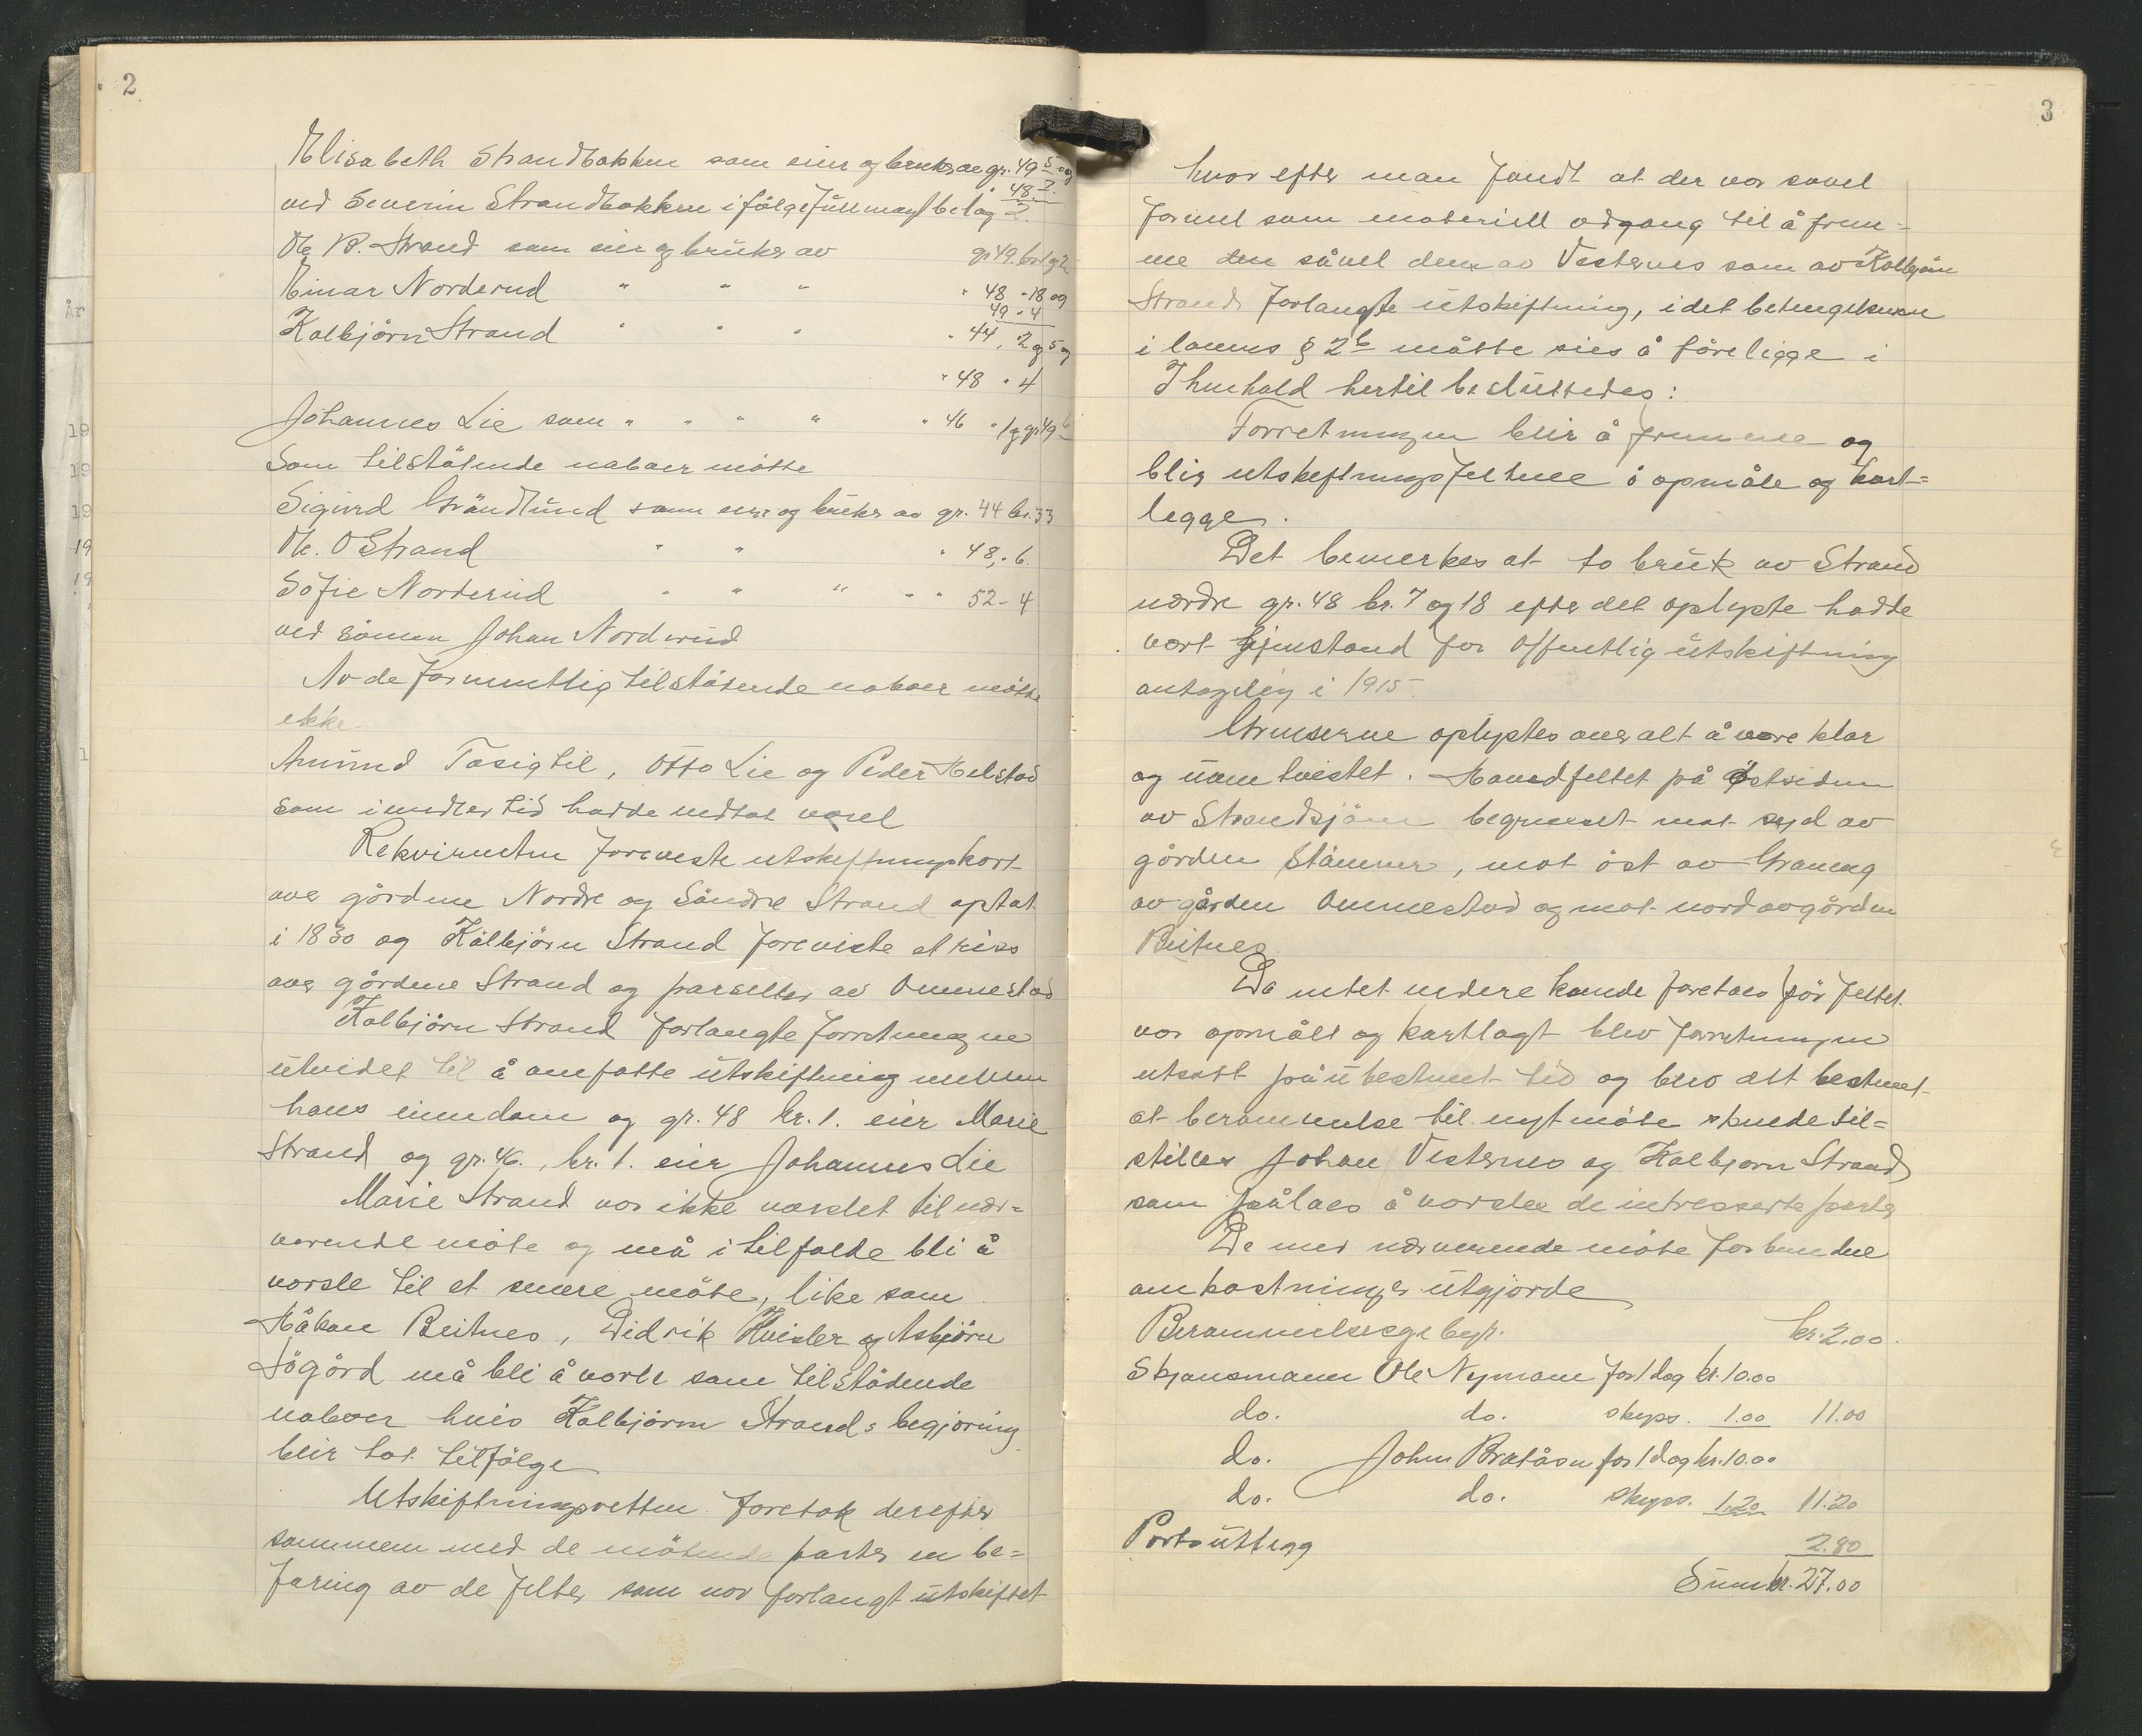 2
Elisabeth Strandbakken som eier og bruker av gr. 49 5 og
" 48 7.
ved Severin Strandbakken ifölge fullmagt bilag 2.
Ole B. Strand som eier og bruker av gr 49. br 1 og 2
Einar Norderud " " " " 48 " 18 og
49 " 4
Kolbjörn Strand " " " " 44, 2 og 5 og
" 48 " 4
Johannes Lie som " " " " " 46 " 1 og gr 49 6
Som tilstötende naboer mötte
Sigurd Gröndlund som eier og bruker av gr. 44 br. 33
Ole. O Strand " " " 48, " 6.
Sofie Norderud " " " " " 52 - 4
ved sönnen Johan Norderud
Av de formentlig tilstötende naboer mötte
ikke.
Amund Tasigtil, Otto Lie og Peder Melstad
som imidlertid hadde medtat varsel
Rekvirenten foreviste utskiftningskart
over gårdene Nordre og Söndre Strand optat
i 1830 og Kolbjörn Strand foreviste et riss
over gårdene Strand og parseller av Ommestad
Kolbjörn Strand forlangte forretningene
utvidet til å omfatte utskiftning mellem
hans eiendom og gr. 48 br. 1. eier Marie
Strand og gr. 46., br. 1. eier Johannes Lie
Marie Strand var ikke varslet til nær=
værende möte og må i tilfelde bli å
varsle til et senere möte, like som
Håkon Beitnes, Didrik Hveisler og Asbjörn
Sögård må bli å varsle som tilstödende
naboer hvis Kolbjörn Strands begjæring
blir tat tilfölge
Utskiftningsretten foretok derefter
sammen med de mötende parter en be=
faring av de felter som var forlangt utskiftet
3
hvor efter man fandt at der var såvel
formel som materiell adgang til å frem=
me den såvel den av Vesternes som av Kolbjörn
Strand forlangte utskiftning, idet betingelserne
i lovens § 2 b måtte sies å föreligge i
Ihenhold hertil besluttedes:
Forretningen blir å fremme og
blir utskiftningsfeltene å opmåle og kart=
legge.
Det bemerkes at to bruk av Strand
nordre gr. 48 br. 7 og 18 efter det oplyste hadde
vært gjenstand for offentlig utskiftning
antagelig i 1915.
Grenserne oplystes overalt å være klar
og uomtvistet. Hovedfeltet på östsiden
av Strandsjöen begrenset mot syd av
gården Stömner, mot öst av Graneng
av gården Ommestad og mot nord av gården
Beitnes
Da intet videre kunde foretaes för feltet
var opmålt og kartlagt blev forretningen
utsatt på ubestemt tid og blev det bestemt
at berammelse til nyt möte skulde til=
stilles Johan Vesternes og Kolbjorn Strand
som pålaes å varsle de intresserte parter
De med nærværende möte forbundne
omkostninger utgjorde
Berammelsesgebyr. kr. 2.00
Skjønsmann Ole Nymoen for 1 dag kr. 10.00
do. do. skyss. 1.00 11.00
do. John Bråtåsen for 1 dag kr. 10.00
do. do. skyss. 1.20 11.20
Portoutlegg 2.80
Sum kr. 27.00
År
19
19
19
19
19
1